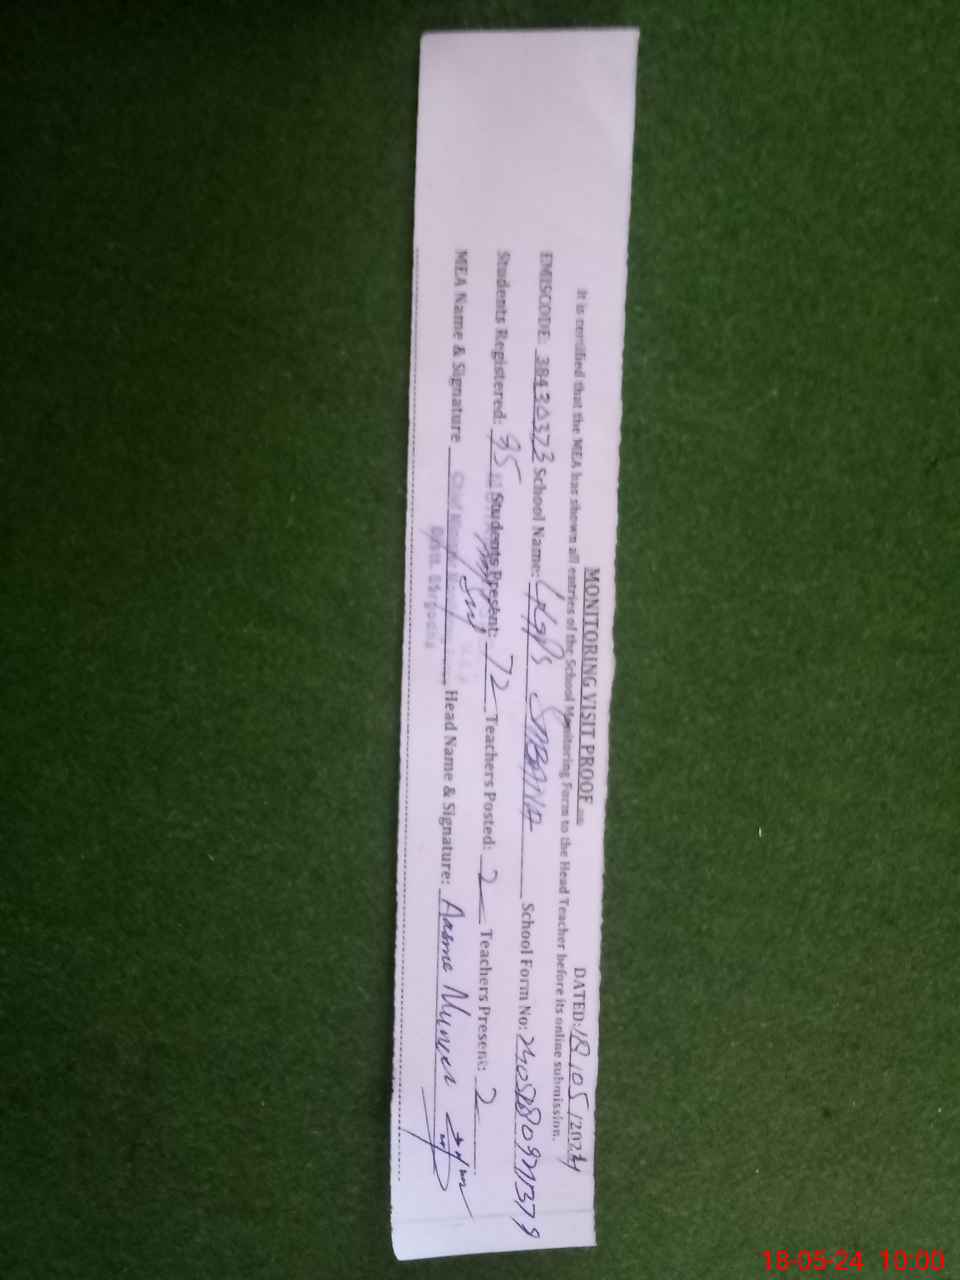 MONITORING VISIT PROOF DATED: 18/05/2024
It is certified that the MEA has shown all entries of the School Monitoring Form to the Head Teacher before its online submission.
EMISCODE: 38430373 School Name: SIBANA School Form No:
Students Registered: 95 Students Present: 72 Teachers Posted: 2 Teachers Present: 2
MEA Name & Signature Head Name & Signature: Aasma Muneer
18-05-24 10:00